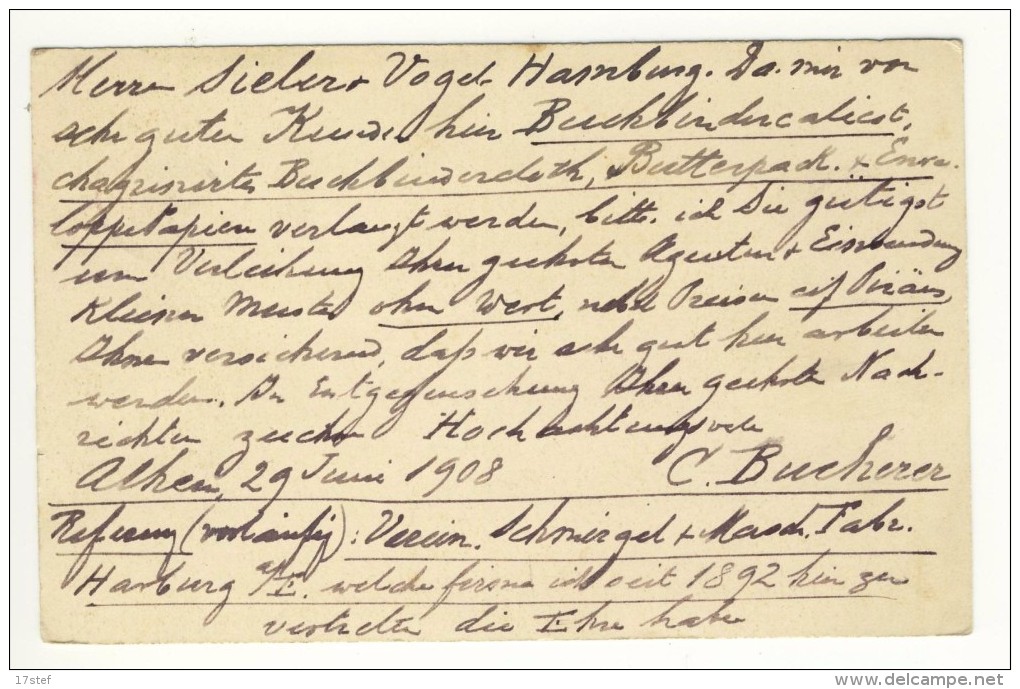 Herren Sieler + Vogel Hamburg. Da mir von
sehr guten Kunden hier Buchbindercalicot,
chagrinirtes Buchbindercloth, Butterpack.. + Enve-
loppe Papiere verlangt werden, bitte ich Sie gütigst
um Verleihung Ihrer geehrten Agentur + Einsendung
kleiner Muster ohne Wert, nebst Preisen cif Piräus,
Ihnen versichernd, daß wir sehr gut hier arbeiten
werden. In Entgegensehung Ihrer geehrten Nach-
richten zeichne Hochachtungsvoll
Athen, 29 Juni 1908 C. Bucherer
Referenz (vorläufig): Verein. Schmirgel + Masch. Fabr.
Harburg a/E. welche firma ich seit 1892 hier zu
vertreten die Ehre habe
17stef
www.delcampe.net